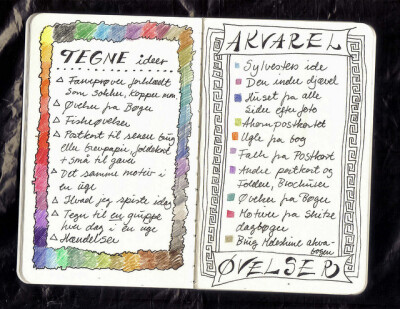 TEGNE ideer
Farveprøver
som sokker, kopper mm
Øvelser på Bøger
Fiskeøvelser
Postkort til senere brug
eller brevpapir
+ små til gaver
Det samme motiv i
en uge
Hvad jeg spiste idag
Tegn til en gruppe
hver dag i en uge
Hændelser
AKVAREL
Sylvesters ide
Den indre djævel
Huset på alle
sider efter foto
Ahornpostkortet
Ugle på bog
Fach på Postkort
Andre postkort og
Foldere, Brochurer
Øvelser på Bøger
Motiver på skitse
dagbøger
Brug Moleskine akva-
bogen
ØVELSER